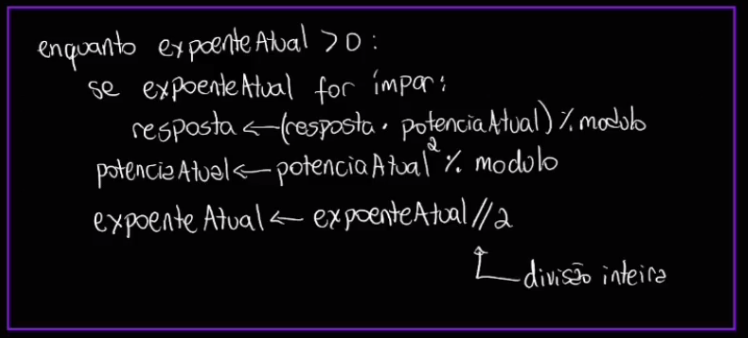 enquanto expoenteAtual > 0:
se expoenteAtual for ímpar:
resposta ← (resposta · potenciaAtual) % modulo
potenciaAtual ← potenciaAtual² % modulo
expoenteAtual ← expoenteAtual // 2
divisão inteira